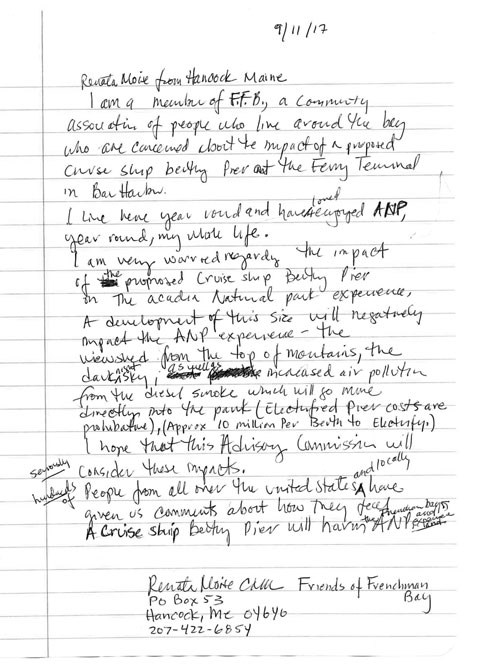 9/11/17
Renata Moise from Hancock Maine
I am a member of F.F.B., a Community
Association of people who live around the bay
who are concerned about the impact of a proposed
Cruise ship berthing Pier at the Ferry Terminal
in Bar Harbor.
I live here year round and have loved ANP,
year round, my whole life.
I am very worried regarding the impact
of the proposed Cruise ship Berthing Pier
on The acadia National park experience.
A development of this size will negatively
impact the ANP experience - the
viewshed from the top of mountains, the
dark sky, as well as increased air pollution
from the diesel smoke which will go more
directly into the park (Electrified Pier costs are
prohibative), (Approx 10 million Per Berth to Electrify.)
I hope that this Advisory Commission will
seriously Consider these impacts.
hundreds of People from all over the United States and locally have
given us comments about how they feel
A Cruise ship Berthing Pier will harm the Frenchman bay and ANP experience
Renata Moise CNM Friends of Frenchman
Bay
PO Box 53
Hancock, Me 04640
207-422-6854